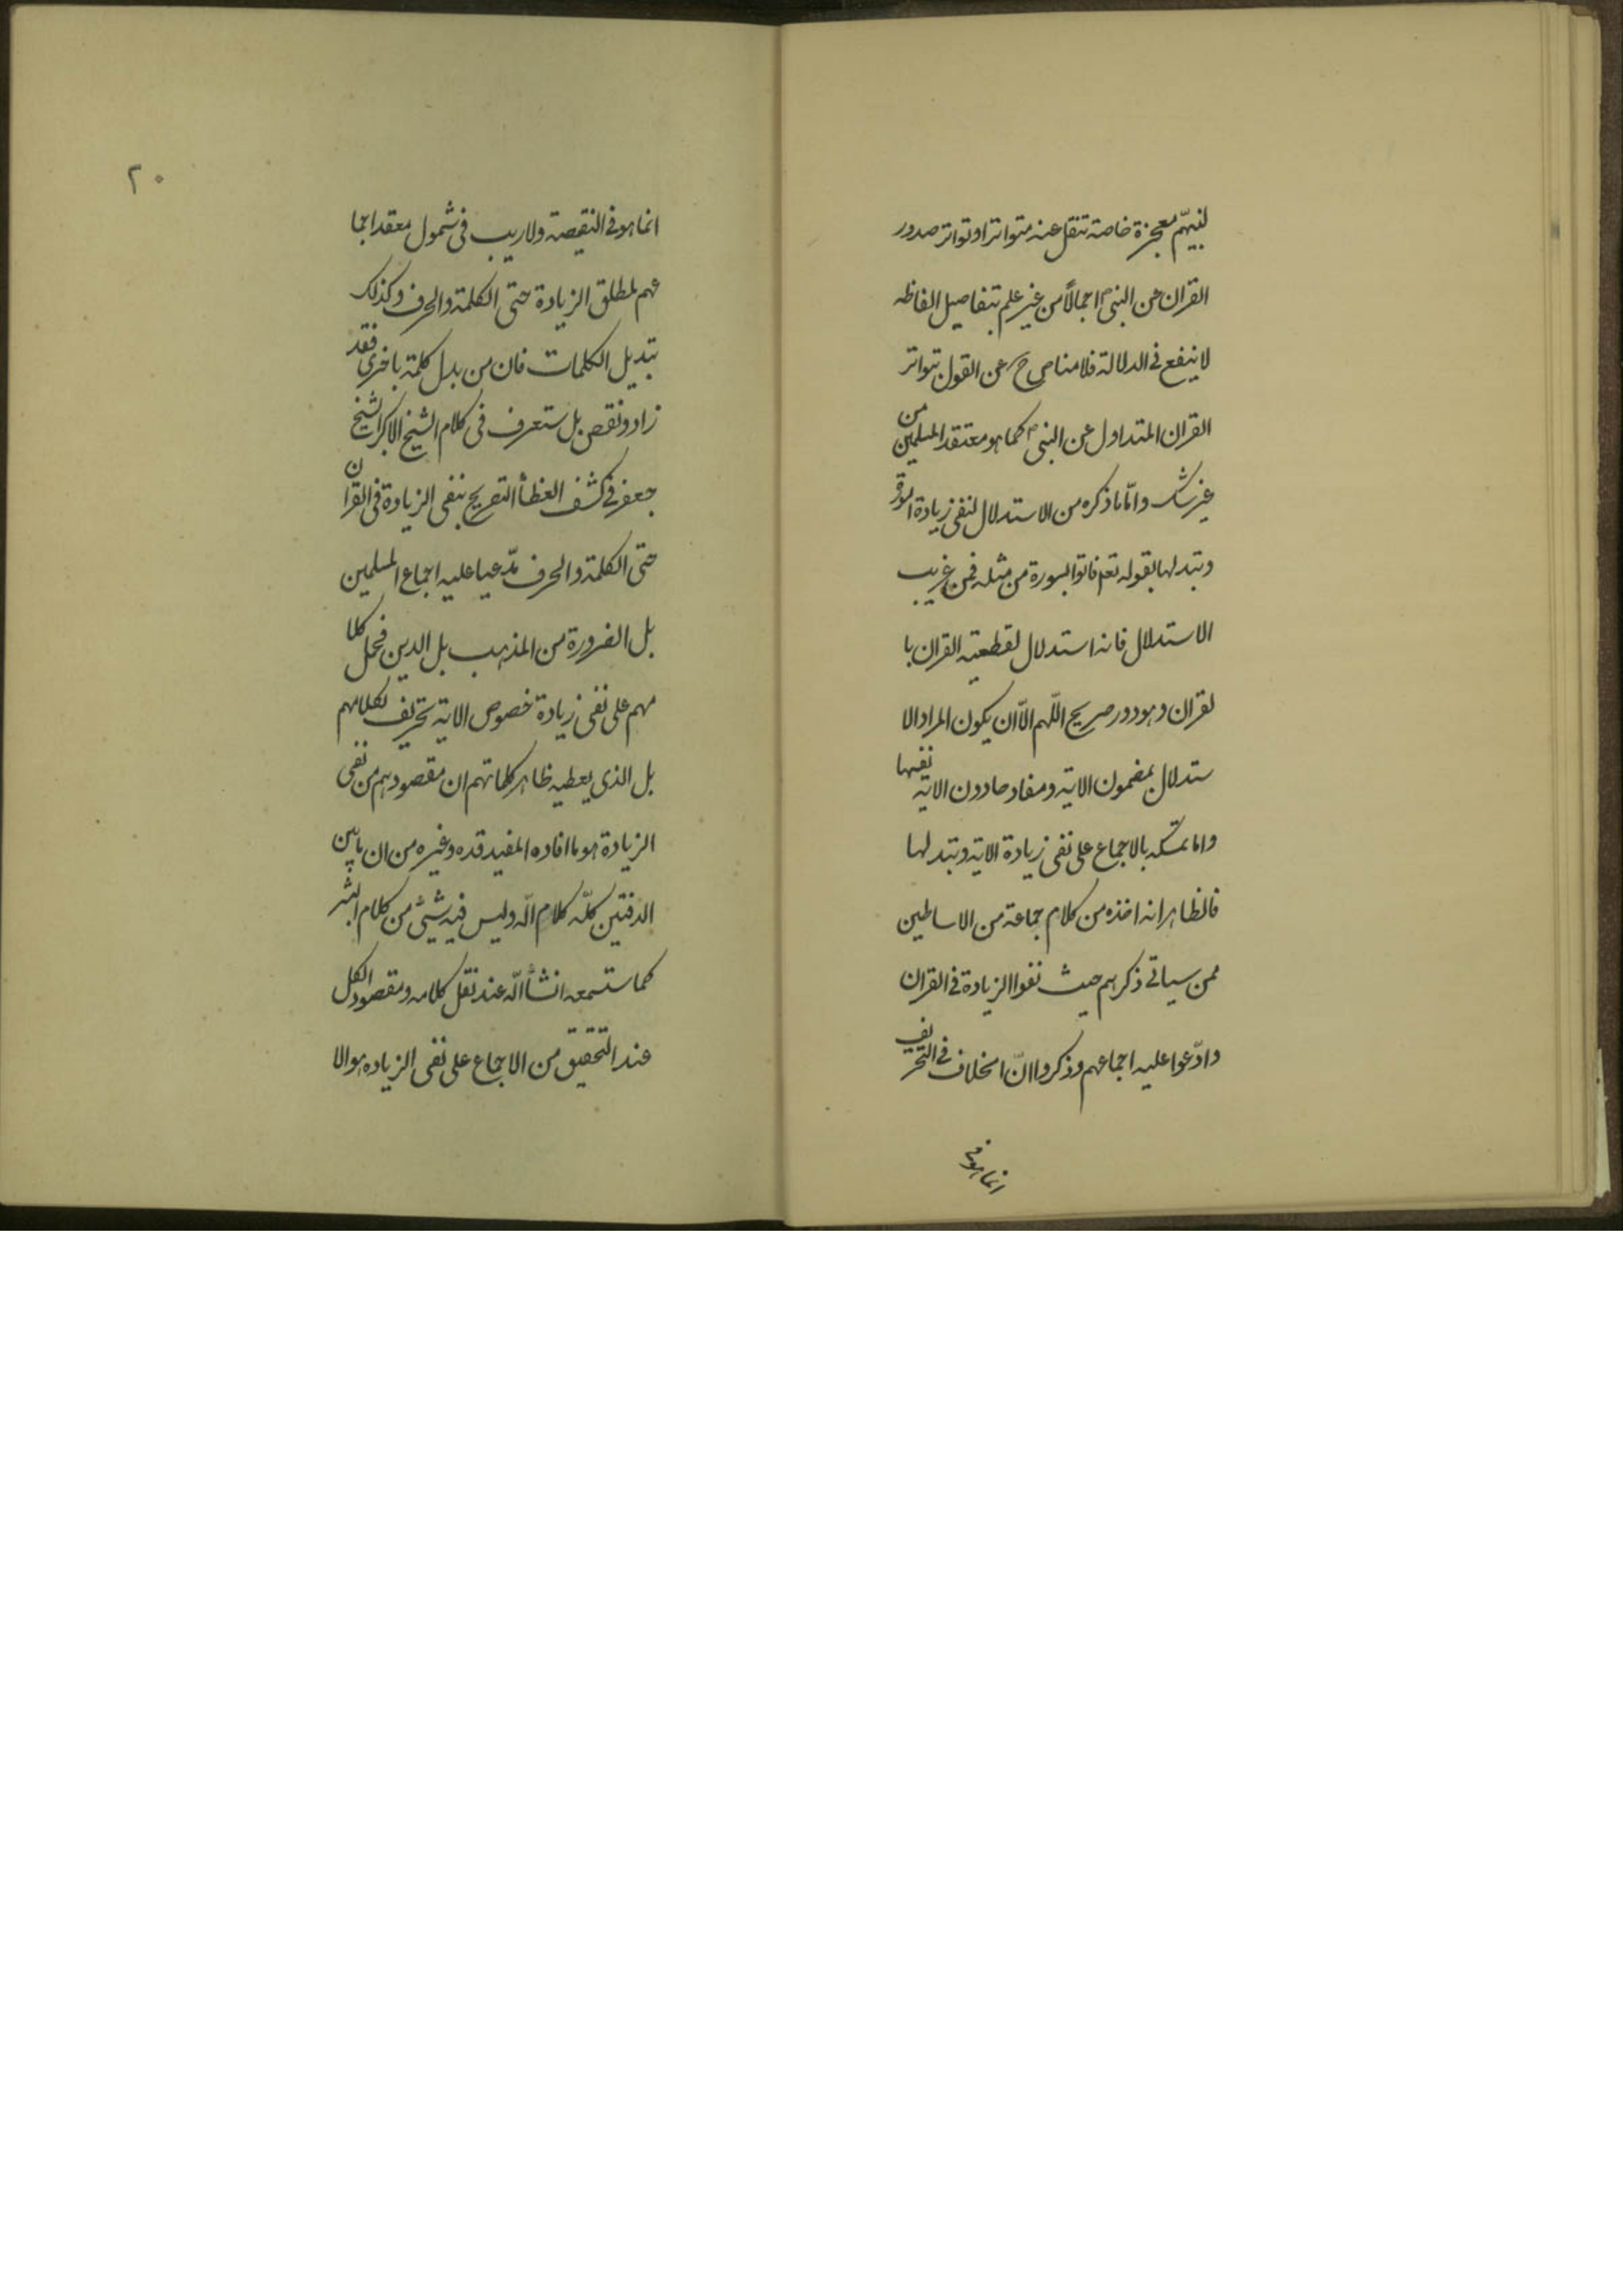 لنبيّهم معجزة خاصة تنقل عنه متواترا وتواتر صدور
القران عن النبي ص اجمالاً من غير علم بتفاصيل الفاظه
لا ينفع في الدلالة فلا مناص ح عن القول بتواتر
القران المتداول عن النبي ص كما هو معتقد المسلمين من
غير شك وامّا ما ذكره من الاستدلال لنفي زيادة السورة
وتبدلها بقوله تعم فاتوا بسورة من مثله فمن غريب
الاستدلال فانه استدلال لقطعية القران با
لقران وهو دور صريح اللّهم الّا ان يكون المراد الا
ستدلال بمضمون الاية ومفادها دون الاية نفسها
واما تمسّكه بالاجماع على نفي زيادة الاية وتبدلها
فالظاهر انه اخذه من كلام جماعة من الاساطين
ممن سياتي ذكرهم حيث نفوا الزيادة في القران
وادّعوا عليه اجماعهم وذكروا انّ الخلاف في التحريف
انما هو في
٢٠
انما هو في النقيصة ولا ريب في شمول معقد اجما
عهم لمطلق الزيادة حتى الكلمة والحرف وكذلك
تبديل الكلمات فان من بدل كلمة باخرى فقد
زاد ونقص بل ستعرف في كلام الشيخ الاكبر الشيخ
جعفر في كشف الغطأ التصريح بنفي الزيادة في القران
حتى الكلمة والحرف مدّعيا عليه اجماع المسلمين
بل الضرورة من المذهب بل الدين فحمل كلا
مهم على نفي زيادة خصوص الاية تحريف لكلامهم
بل الذي يعطيه ظاهر كلماتهم ان مقصودهم من نفي
الزيادة هو ما افاده المفيد قده وغيره من ان ما بين
الدفتين كلّه كلام اللّه وليس فيه شيئ من كلام البشر
كما ستسمعه انشأ اللّه عند نقل كلامه ومقصود الكل
عند التحقيق من الاجماع على نفي الزياده هو الا